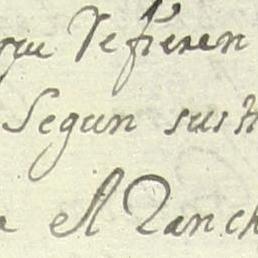 que Refieren
Segun sus
el Ranch